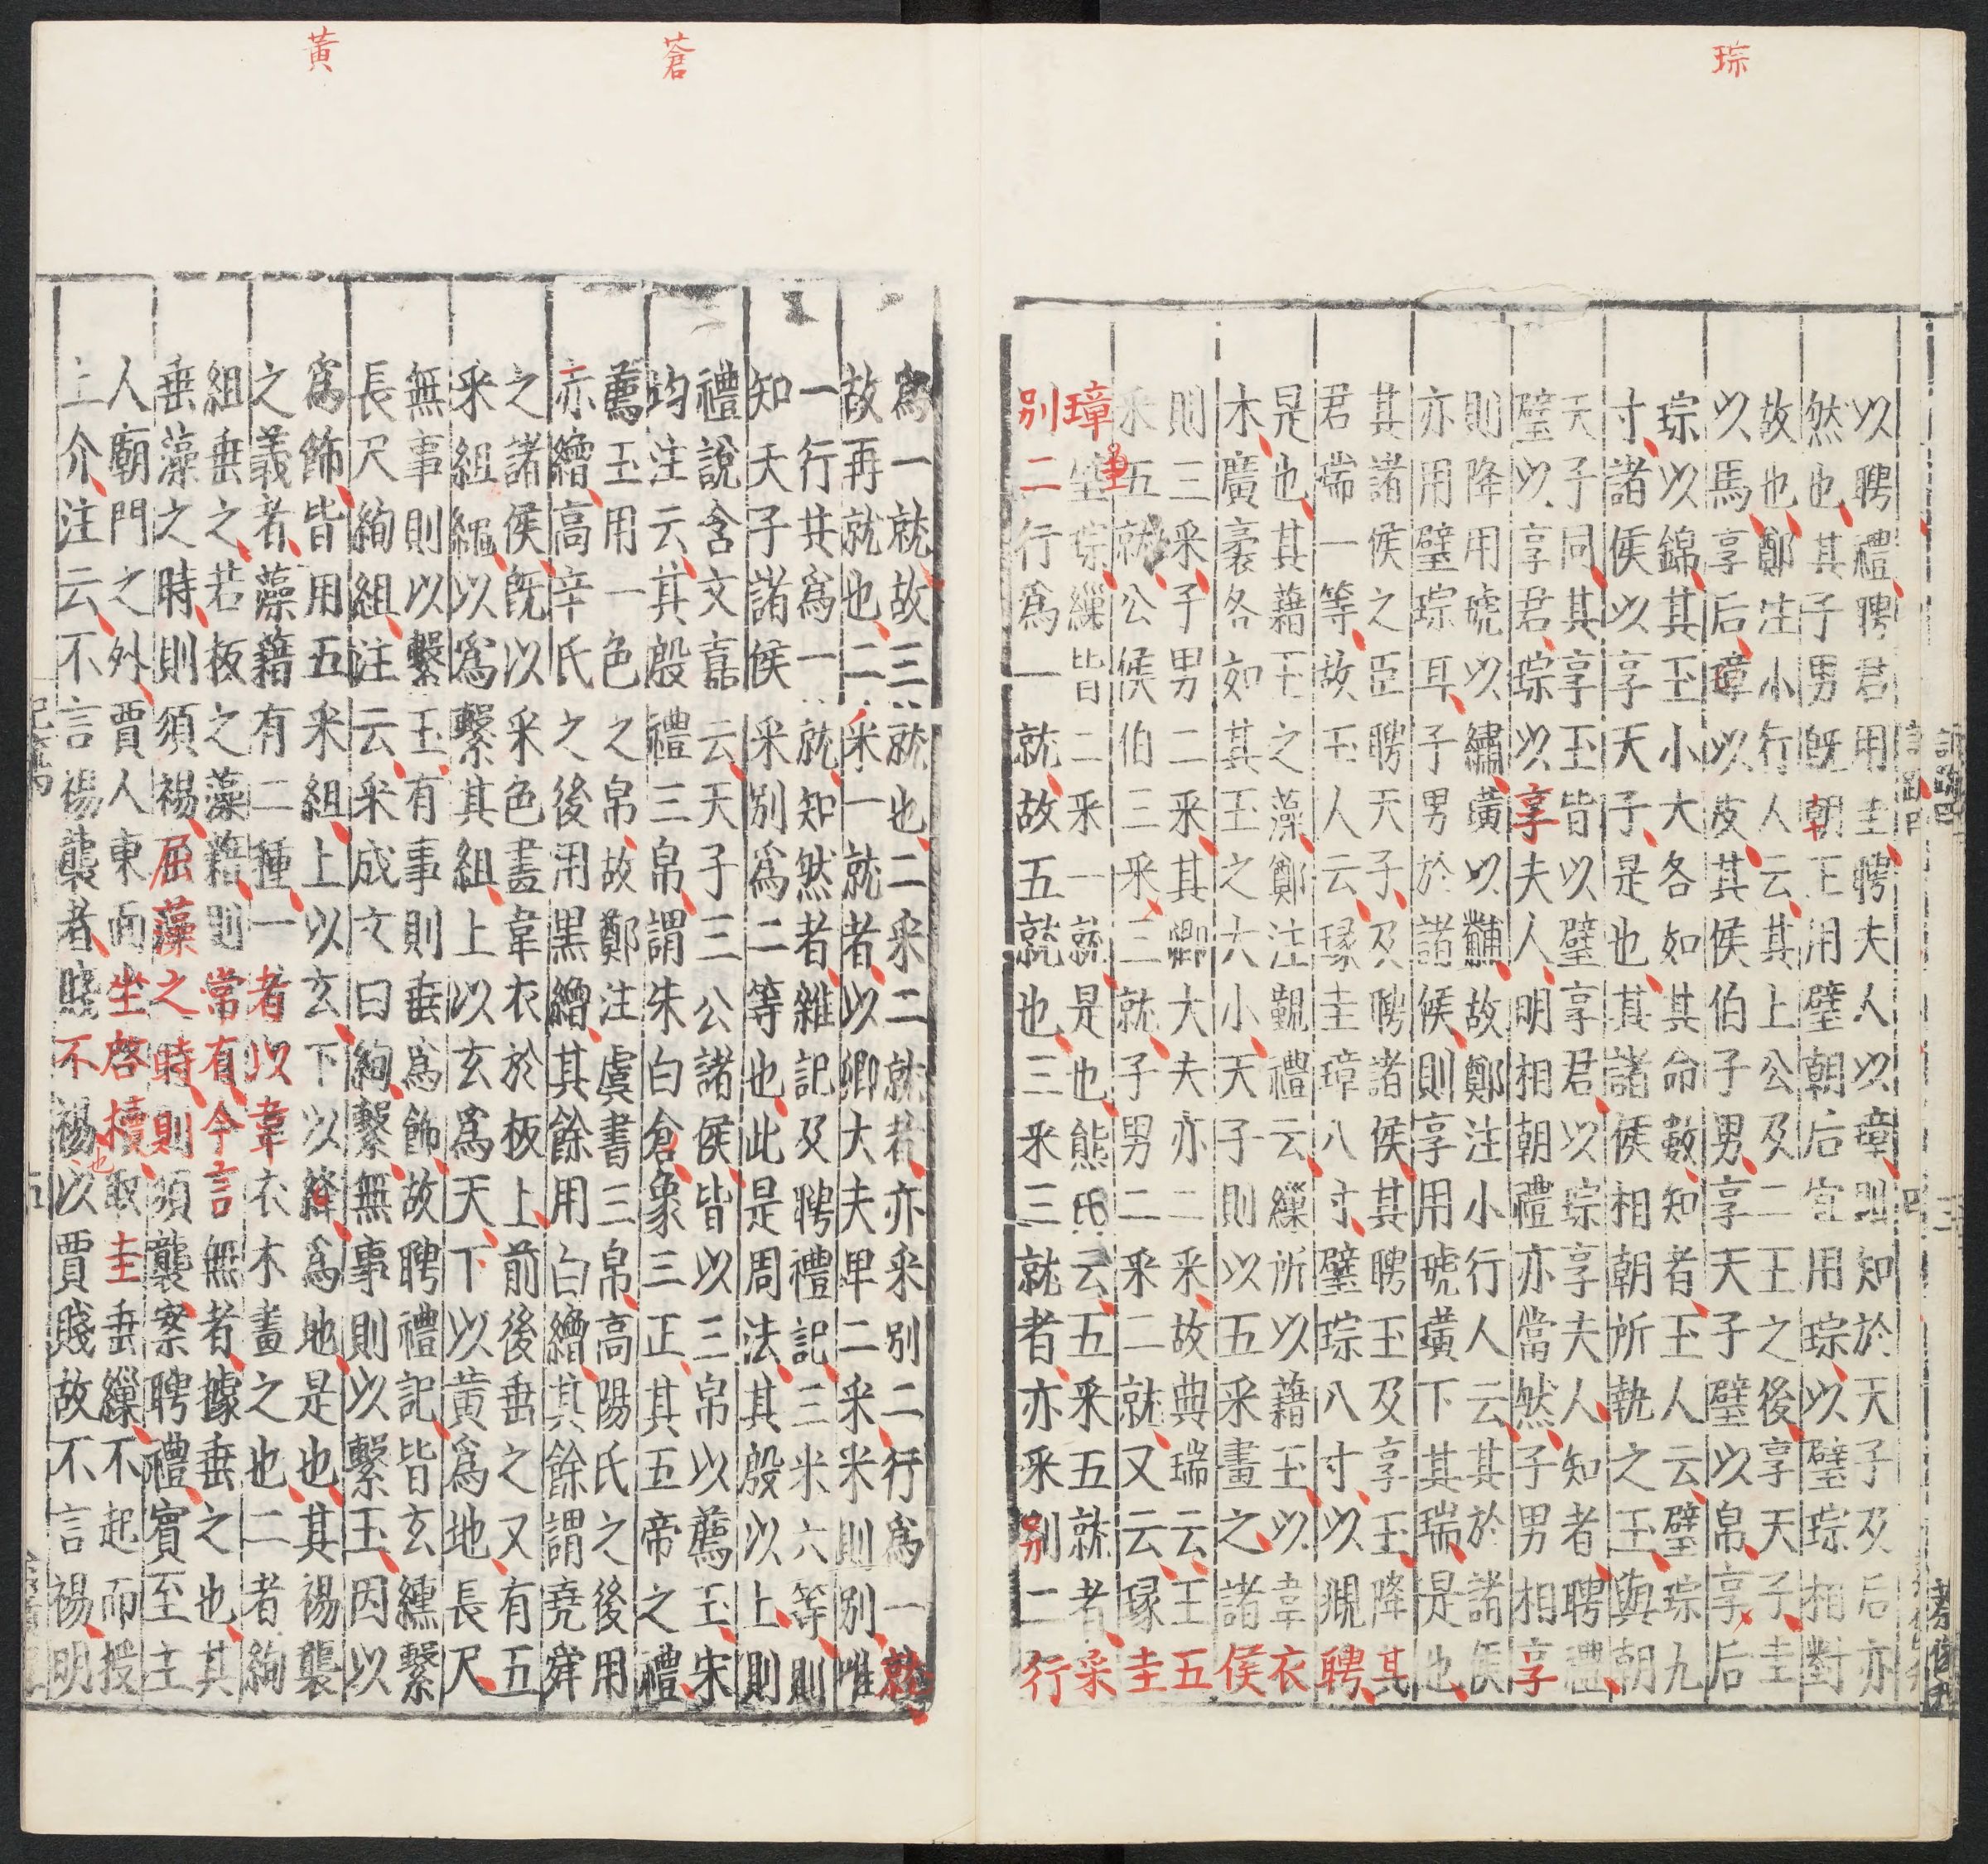 琮
以聘禮聘君用圭聘夫人以璋則知於天子及后亦
然也其子男既朝王用璧朝后宜用琮以璧琮相對
故也鄭注小行人云其上公及二王之後享天子圭
以馬享后璋以皮其侯伯子男享天子璧以帛享后
琮以錦其玉小大各如其命數知者玉人云璧琮九
寸諸侯以享天子是也其諸侯相朝所執之玉與朝
天子同其享玉皆以璧享君以琮享夫人知者聘禮
璧以享君琮以享夫人明相朝禮亦當然子男相享
則降用琥以繡璜以黼故鄭注小行人云其於諸侯
亦用璧琮耳子男於諸侯則享用琥璜下其瑞是也
其諸侯之臣聘天子及聘諸侯其聘玉及享玉降其
君瑞一等故玉人云瑑圭璋八寸璧琮八寸以覜聘
是也其藉玉之藻鄭注覲禮云繅所以藉玉以韋衣
木廣袤各如其玉之大小天子則以五采畫之諸侯
則三采子男二采其卿大夫亦二采故典瑞云王五
采五就公侯伯三采三就子男二采二就又云瑑圭
璋璧琮繅皆二采一就是也熊氏云五采五就者采
別二行爲一就故五就也三采三就者亦采別二行
蒼
黃
爲一就故三就也二采二就者亦采別二行爲一就
故再就也二采一就者以卿大夫卑二采采則別唯
一行共爲一就知然者雜記及聘禮記三采六等則
知天子諸侯采別爲二等也此是周法其殷以上則
禮說含文嘉云天子三公諸侯皆以三帛以薦玉宋
均注云其殷禮三帛謂朱白倉象三正其五帝之禮
薦玉用一色之帛故鄭注虞書三帛高陽氏之後用
赤繒高辛氏之後用黑繒其餘用白繒其餘謂堯舜
之諸侯既以采色畫韋衣於板上前後垂之又有五
采組繩以爲繫其組上以玄爲天下以黃爲地長尺
無事則以繫玉有事則垂爲飾故聘禮記皆玄纁繫
長尺絢組注云采成文曰絢繫無事則以繫玉因以
爲飾皆用五采組上以玄下以絳爲地是也其裼襲
之義者藻藉有二種一者以韋衣木畫之也二者絢
組垂之若板之藻藉則常有今言無者據垂之也其
垂藻之時則須裼屈藻之時則須襲案聘禮賓至主
人廟門之外賈人東面坐啓櫝取圭垂繅不起而授
上介注云不言裼襲者賤不裼也以賈賤故不言裼明